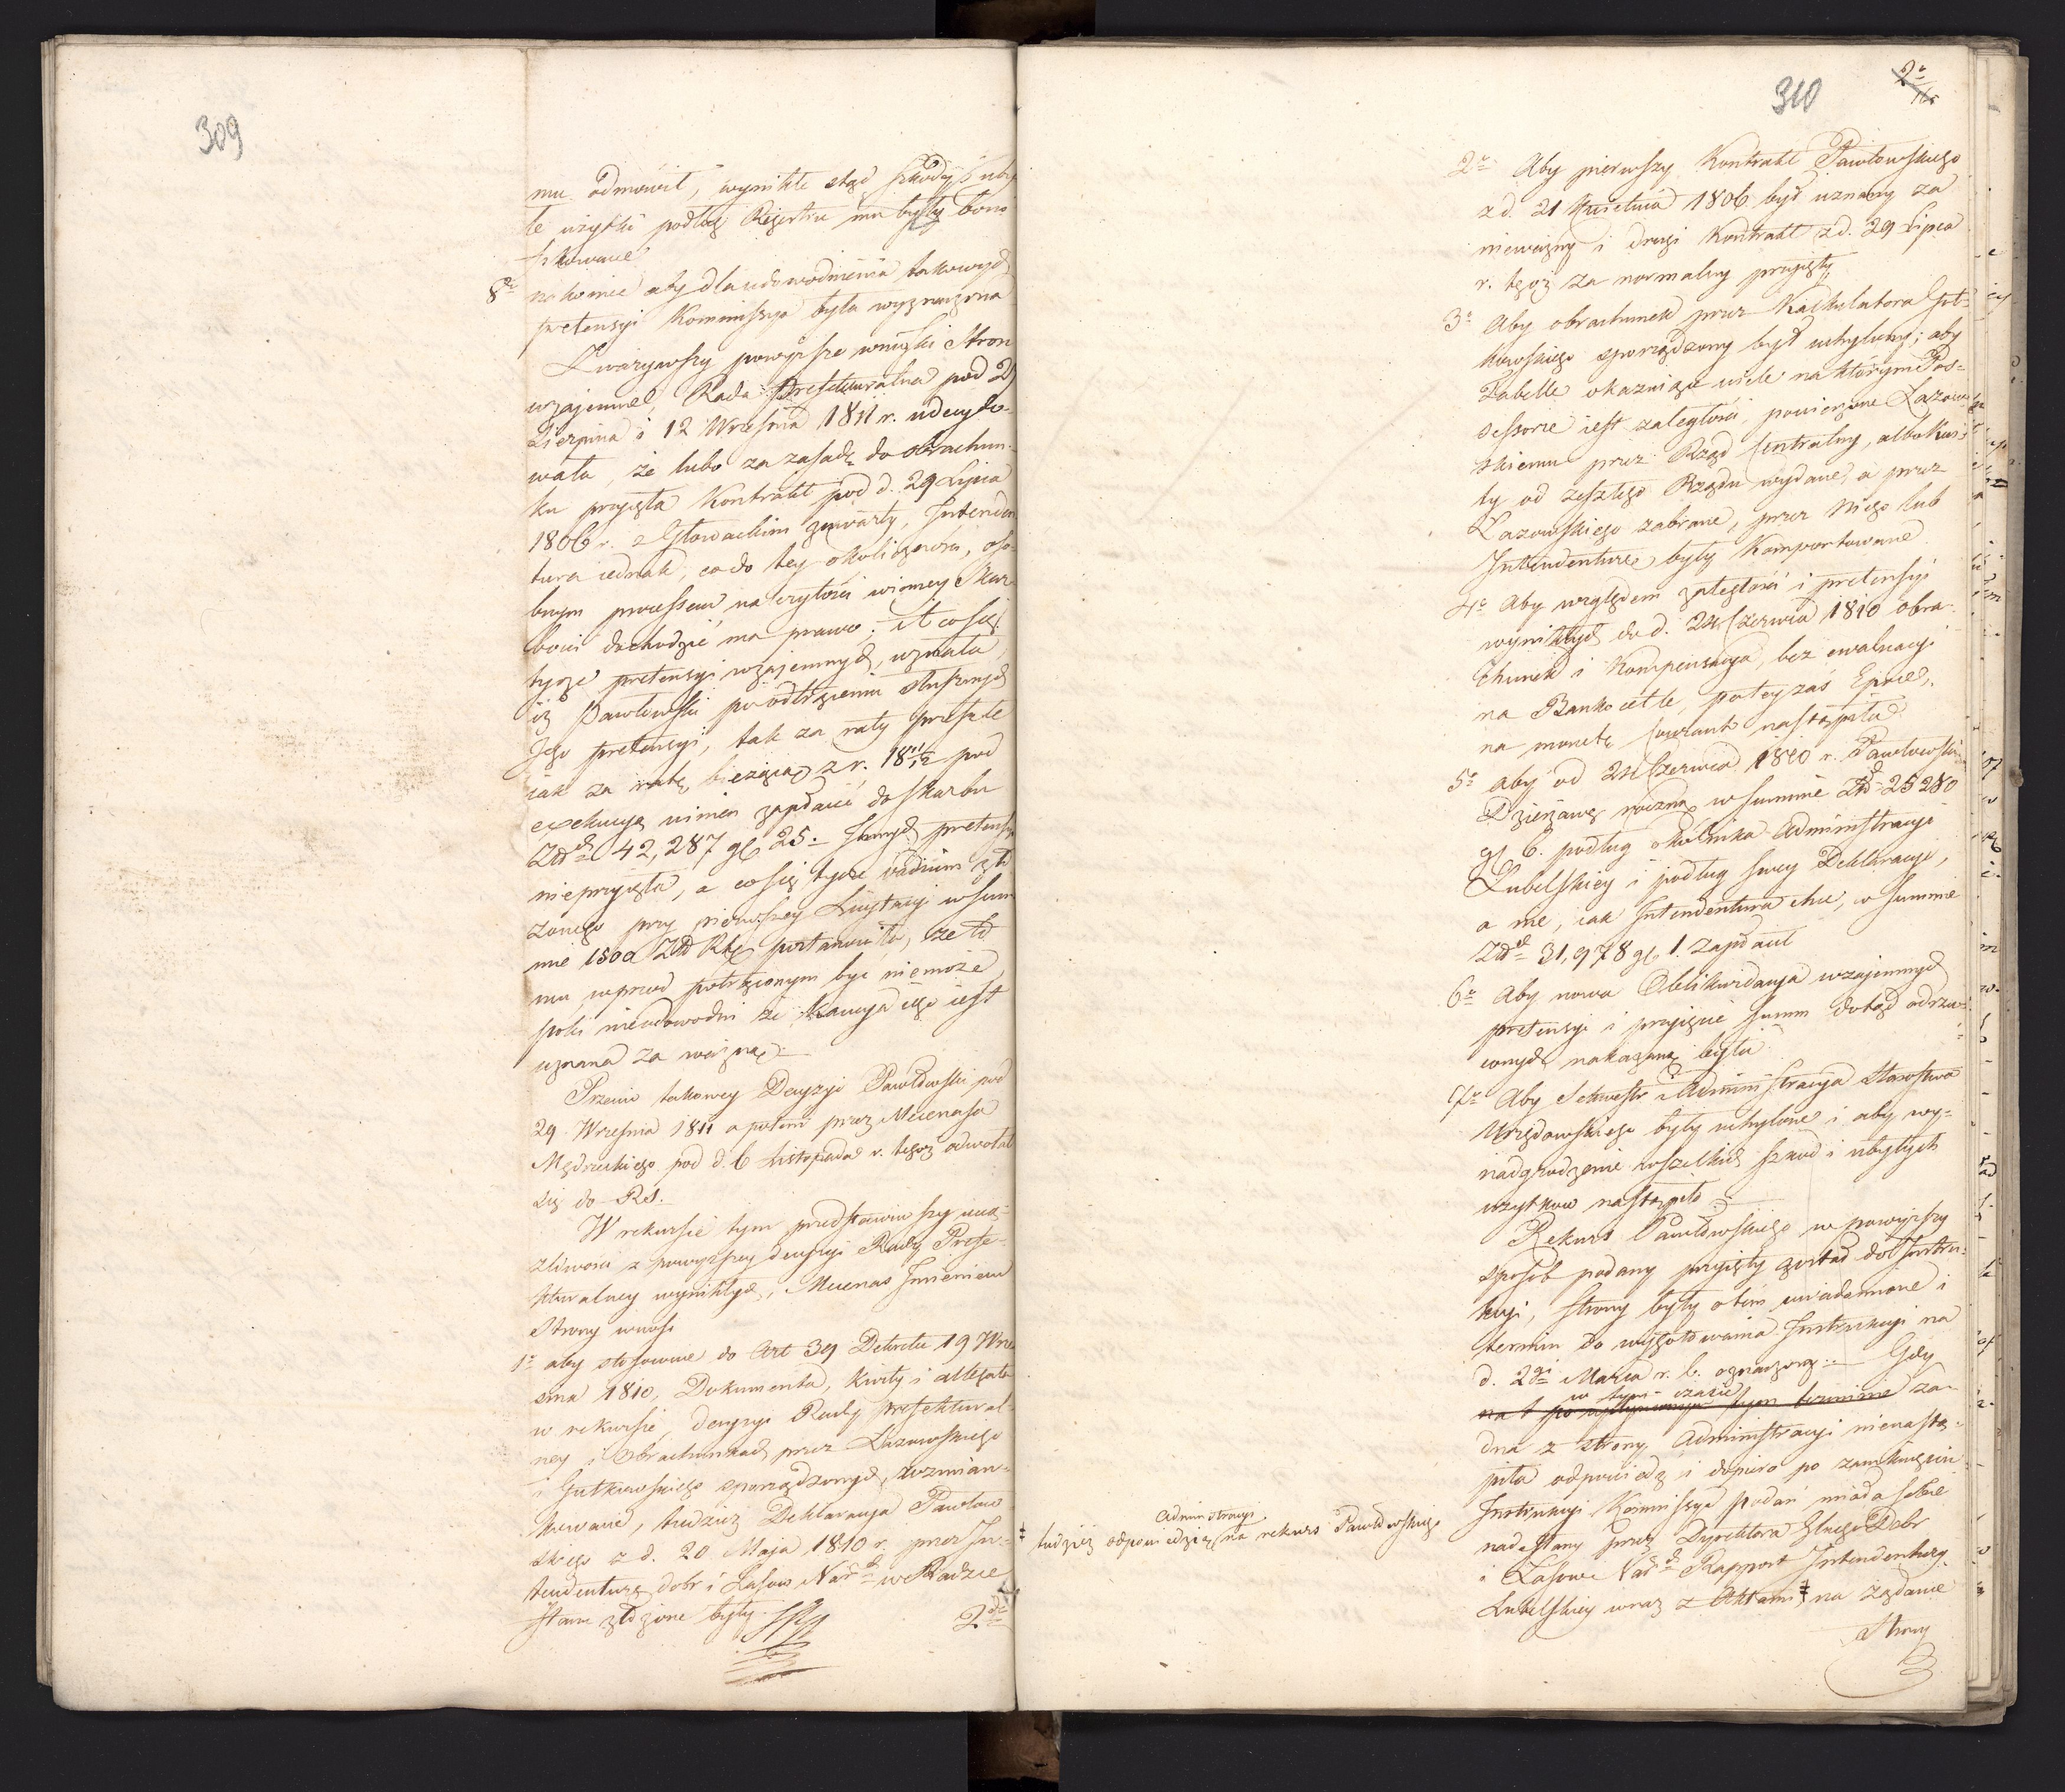 309
mu odmówił, wynikłe stąd szkody i uby
łe użytki podług Rejestru mu były boni
fikowane
8° nakoniec aby dla udowodnienia takowych
pretensyi Kommissya była wyznaczona
Zważywszy powyższe wnioski Stron
wzajemne, Rada Prefekturalna pod 27
Sierpnia i 12 Września 1811 r. zadecydo-
wała, że lubo za zasadę do obrachun-
ku przyięła Kontrakt pod d. 29 Lipca
1806 r. z Głowackim zawarty, Intenden
tura iednak, co do tey okoliczności, oso-
bnym processem na czyłości winney Skar
bowi dochodzić ma prawo; A co się
tycze pretensyi wzajemnych, uznała,
iż Pawłowski po odtrąceniu słusznych
Jego pretensyi, tak za raty przeszłe
iak za ratę bieżącą z r. 18 11/12 pod
exekucyą winien zapłacić do skarbu
Złł 42,287 gł 25.- Innych pretensyi
nieprzyięła, a co się tycze vadium zło
żonego przy pierwszey Licytacyi w sum
mie 1500 Złł Rh postanowiła, że to
mu wprzód potrąconym być niemoże,
poki nieudowodni że Kaucya iego iest
uznana za ważną.-
Przeciw takowey Decyzyi Pawłowski pod
29 Września 1811 a potem przez Mecenasa
Mędrzeckiego pod d. 6 Listopada r. tegoż odwołał
się do RS.
W rekursie tym przedstawiwszy ucią-
żliwości z powyższey decyzyi Rady Prefe-
kturalney wynikłych, Mecenas Imieniem
Strony wnosi
1° aby stosownie do Art 39 Dekretu 19 Wrze
śnia 1810, Dokumenta, kwity i allegata
w rekursie, decyzyi Rady prefektural-
ney i Obrachunkach przez Lazowskiego
i Gutkowskiego sporządzonych, wzmian-
kowane, tudzież Deklaracya Pawłow
skiego z d. 20 Maja 1810 r. przez In-
tendenturę dobr i Lasów Nar w Radzie
Stanu złożone były.
2°
310
2°
2° Aby pierwszy Kontrakt Pawłowskiego
z d. 21 Kwietnia 1806 był uznany za
nieważny i drugi Kontrakt z d. 29 Lipca
r. tegoż za normalny przyięty
3° Aby obrachunek przez Kalkulatora Gut-
kowskiego sporządzony był uchylony; aby
Tabelle okazuiące wiele na którym Pos-
sessorze iest zaległości, powierzone Lazow
skiemu przez Rząd Centralny, albo kwi-
ty od zeszłego Rządu wydane, a przez
Lazowskiego zabrane, przez niego lub
Intendenturę były komportowane
4° Aby względem zaległości i pretensyi
wynikłych do d. 24 Czerwca 1810 obra-
chunek i kompensacya, bez ewaluacyi
na Bankocetle, po tey zaś Epoce,
na monetę Courant nastąpiła
5° aby od 24 Czerwca 1810 r. Pawłowski
Dzierżawę roczną w summie Złł 25280
gł 6. podług okólnika Administracyi
Lubelskiey i podług swey Deklaracyi,
a nie, iak Intendentura chce, w summie
Złł 31,978 gł 1. zapłacił
6° Aby nowa Oblikwidacya wzajemnych
pretensyi i przyięcie summ dotąd odrzu-
conych nakazaną była
7° Aby Sekwestr i Administracya Starostwa
Urzędowskiego były uchylone i aby wy-
nadgrodzenie wszelkich szkód i ubyłych
użytków nastąpiło
Rekurs Pawłowskiego w powyższy
sposób podany przyięty został do Instru-
kcyi, strony były o tém uwiadomione i
termin do wygotowania Instrukcyi na
d. 2gi Marca r. b. oznaczony.- Gdy
w tym czasie
tym terminie ża-
dna z strony Administracyi nienastą-
piła odpowiedź i dopiero po zamknięciu
Instrukcyi Kommissya podań miała sobie
nadesłany przez Dyrektora Głnego Dobr
i Lasow Nar Rapport Intendentury
Lubelskiey wraz z Aktami ‡ na żądanie
Strony
Administracyi
‡ tudzież odpowiedzią na rekurs Pawłowskiego